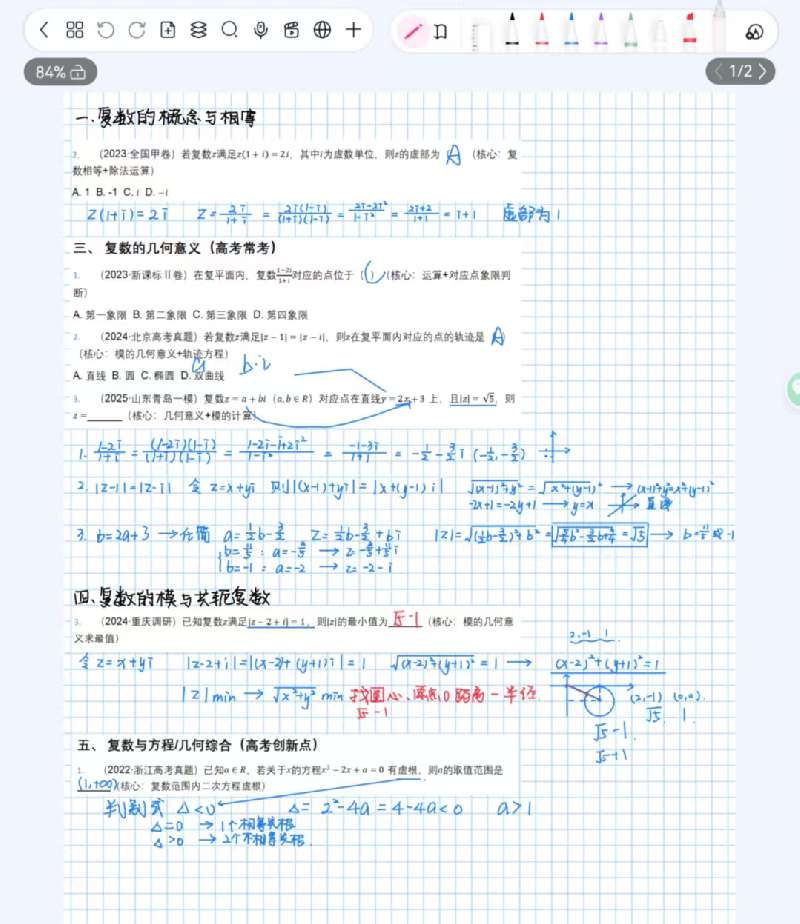 84%
1/2
一.复数的概念与相等
2. （2023·全国甲卷）若复数z满足z(1 + i) = 2i，其中i为虚数单位，则z的虚部为 A （核心：复
数相等+除法运算）
A. 1 B. -1 C. i D. -i
z(1+i)=2i z=2i/1+i = 2i(1-i)/(1+i)(1-i) = 2i-2i²/1-i² = 2i+2/1+1 = i+1 虚部为1
三、复数的几何意义（高考常考）
1. （2023·新课标 II 卷）在复平面内，复数1-2i/1+i对应的点位于（ ）（核心：运算+对应点象限判
断）
A. 第一象限 B. 第二象限 C. 第三象限 D. 第四象限
2. （2024·北京高考真题）若复数z满足|z - 1| = |z - i|，则z在复平面内对应的点的轨迹是 A
（核心：模的几何意义+轨迹方程）
a b·i
A. 直线 B. 圆 C. 椭圆 D. 双曲线
3. （2025·山东青岛一模）复数z = a + bi（a, b ∈ R）对应点在直线y = 2x + 3 上，且|z| = √5，则
z =______（核心：几何意义+模的计算）
1. 1-2i/1+i = (1-2i)(1-i)/(1+i)(1-i) = 1-2i-i+2i²/1-i² = -1-3i/1+1 = -1/2-3/2i (-1/2,-3/2)
2. |z-1|=|z-i| 令 z=x+yi 则|(x-1)+yi|=|x+(y-1)i| √(x-1)²+y² = √x²+(y-1)² → (x-1)²+y²=x²+(y-1)²
-2x+1=-2y+1 → y=x → 直线
3. b=2a+3 → 化简 a=1/2b-3/2 z=1/2b-3/2+bi |z|=√(1/2b-3/2)²+b² = √5/4b²-3/2b+9/4 = √5 → b=11/5 或 -1
b=11/5 : a=-2/5 → z=-2/5+11/5i
b=-1 : a=-2 → z=-2-i
四.复数的模与共轭复数
3. （2024·重庆调研）已知复数z满足|z - 2 + i| = 1，则|z|的最小值为 √5-1 （核心：模的几何意
义求最值）
2,-1 1
令 z=x+yi |z-2+i|=|(x-2)+(y+1)i|=1 √(x-2)²+(y+1)² = 1 → (x-2)²+(y+1)²=1
|z|min → √x²+y² min 找圆心、原点0距离-半径
√5-1
(2,-1) (0,0)
√5 1
√5-1
√5+1
五、复数与方程/几何综合（高考创新点）
1. （2022·浙江高考真题）已知a ∈ R，若关于x的方程x² - 2x + a = 0 有虚根，则a的取值范围是
(1,+∞)（核心：复数范围内二次方程虚根）
判别式 △<0 △= 2²-4a=4-4a<0 a>1
△=0 → 1个相等实根
△>0 → 2个不相等实根.